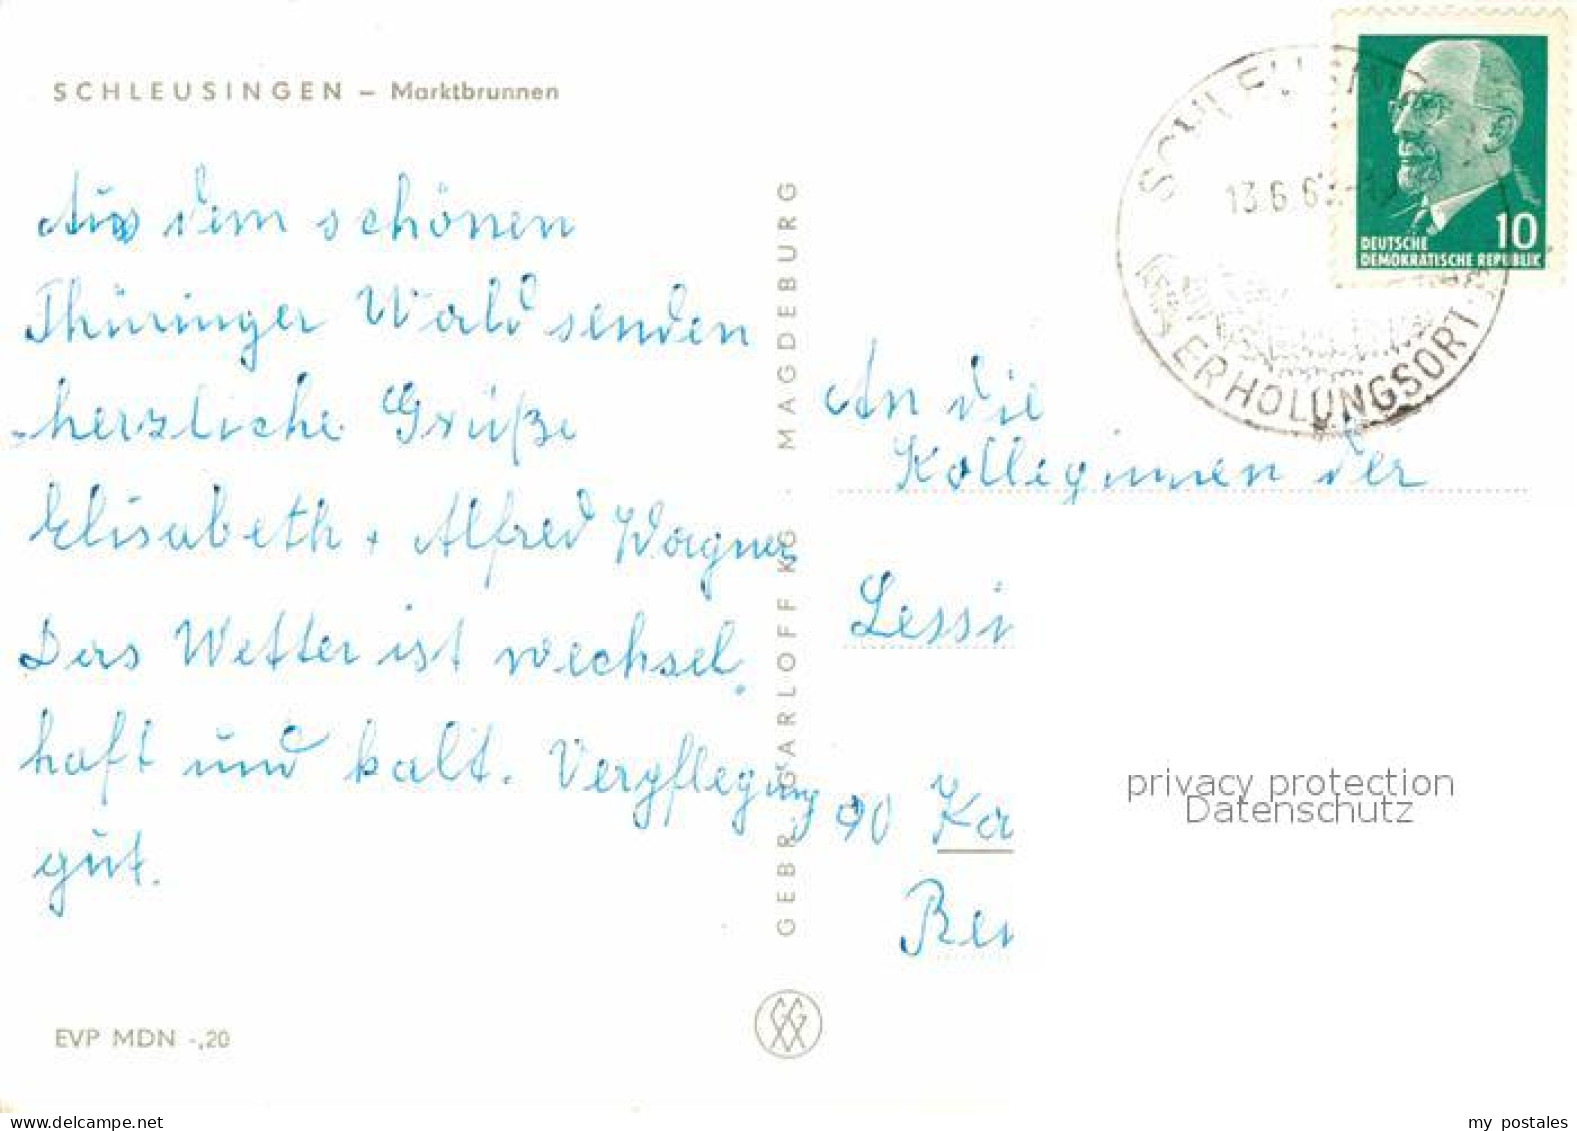 SCHLEUSINGEN – Marktbrunnen
Aus dem schönen
Thüringer Wald senden
herzliche Grüße
Elisabeth + Alfred Wagner
Das Wetter ist wechsel
haft und kalt. Verpflegung
gut.
EVP MDN -,20
GEBR. GARLOFF KG · MAGDEBURG
13.6.6
ERHOLUNGSORT
10
DEUTSCHE
DEMOKRATISCHE REPUBLIK
An die
Kolleginnen der
Lessi
90 Ka
privacy protection
Datenschutz
www.delcampe.net
my_postales